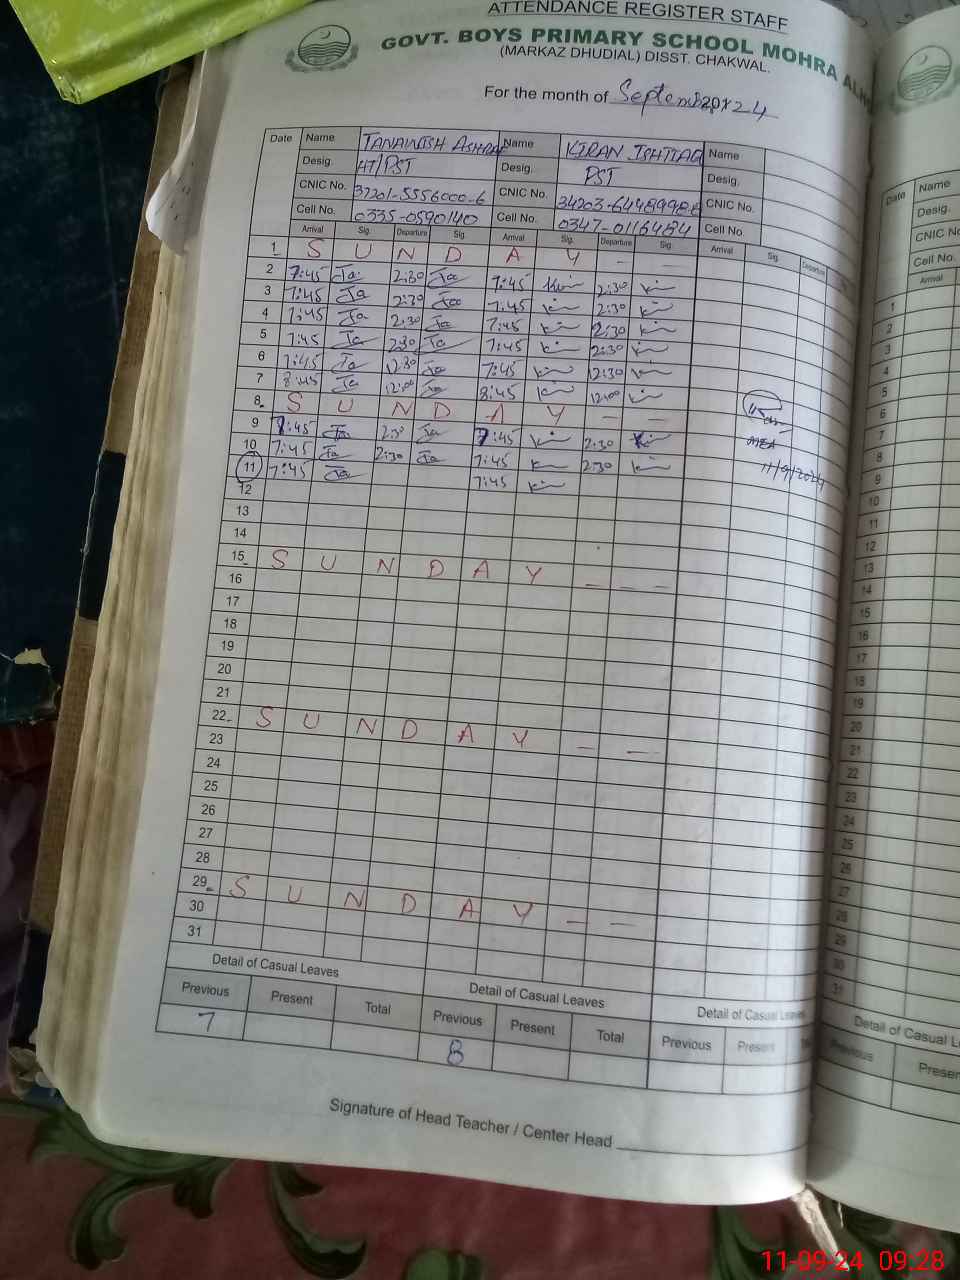 ATTENDANCE REGISTER STAFF
GOVT. BOYS PRIMARY SCHOOL MOHRA
(MARKAZ DHUDIAL) DISST. CHAKWAL.
For the month of September 2024
Date Name TANAWISH ASHRAF Name KIRAN ISHTIAQ Name
Desig. HT/PST Desig. PST Desig.
CNIC No. 37201-5556000-6 CNIC No. CNIC No.
Cell No. 0335-0590140 Cell No. 0347-0116484 Cell No.
Arrival Sig. Departure Sig. Arrival Sig. Departure Sig. Arrival Sig. Departure
1 S U N D A Y - -
2 7:45 Ta 2:30 Ta 7:45 2:30
3 7:45 Ta 2:30 Ta 7:45 2:30
4 7:45 Ta 2:30 Ta 7:45 2:30
5 7:45 Ta 2:30 Ta 7:45 2:30
6 7:45 Ta 12:30 Ta 7:45 12:30
7 8:45 Ta 12:00 Ta 8:45 12:00
8 S U N D A Y - -
9 7:45 Ta 2:30 Ta 7:45 2:30
10 7:45 Ta 2:30 Ta 7:45 2:30
11 7:45 Ta 7:45
MEA
11/9/2024
12
13
14
15 S U N D A Y - - -
16
17
18
19
20
21
22 S U N D A Y - -
23
24
25
26
27
28
29 S U N D A Y - -
30
31
Detail of Casual Leaves Detail of Casual Leaves Detail of Casual Leaves
Previous Present Total Previous Present Total Previous Present
7 8
Signature of Head Teacher / Center Head
Date Name
Desig.
CNIC No
Cell No.
Arrival
1
2
3
4
5
6
7
8
9
10
11
12
13
14
15
16
17
18
19
20
21
22
23
24
25
26
27
28
29
30
31
Detail of Casual
Previous
11-09-24 09:28